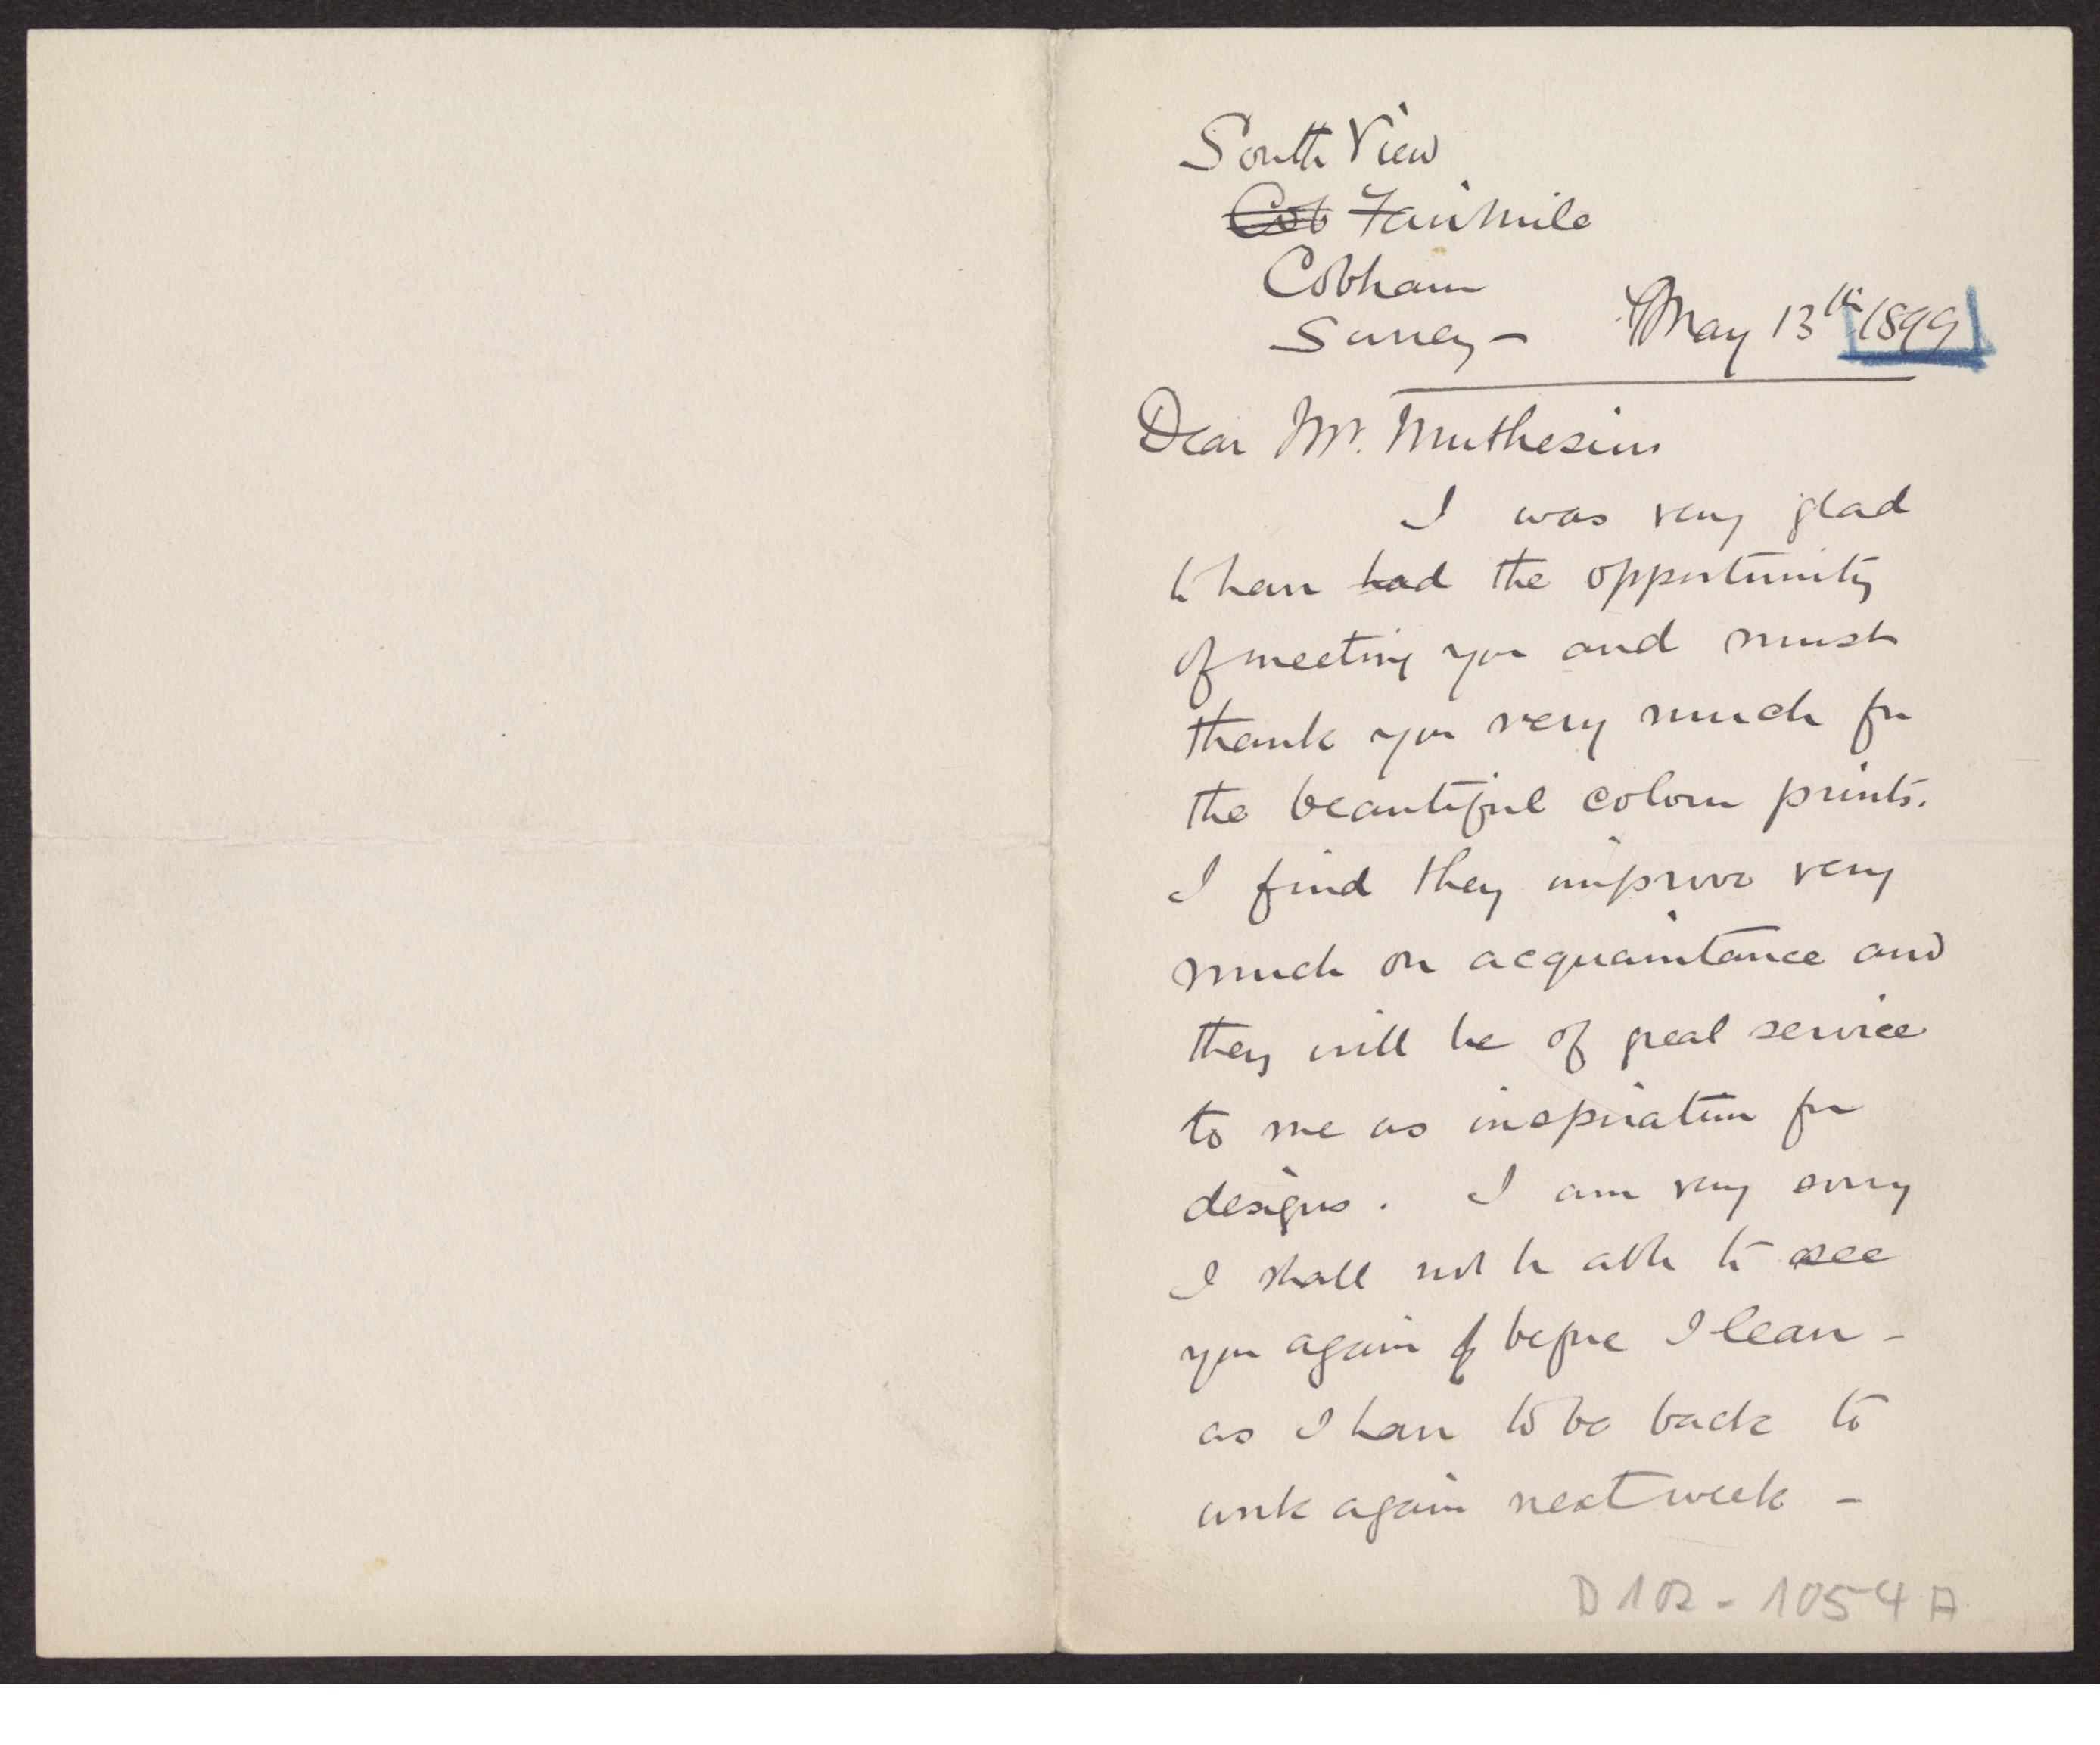 South View
Cob Fairmile
Cobham
Surrey – May 13th 1899
Dear Mr. Muthesius
I was very glad
to have had the opportunity
of meeting you and must
thank you very much for
the beautiful colour prints.
I find they improve very
much on acquaintance and
they will be of great service
to me as inspiration for
designs. I am very sorry
I shall not be able to see
you again before I leave –
as I have to be back to
work again next week –
D 102 - 1054 A